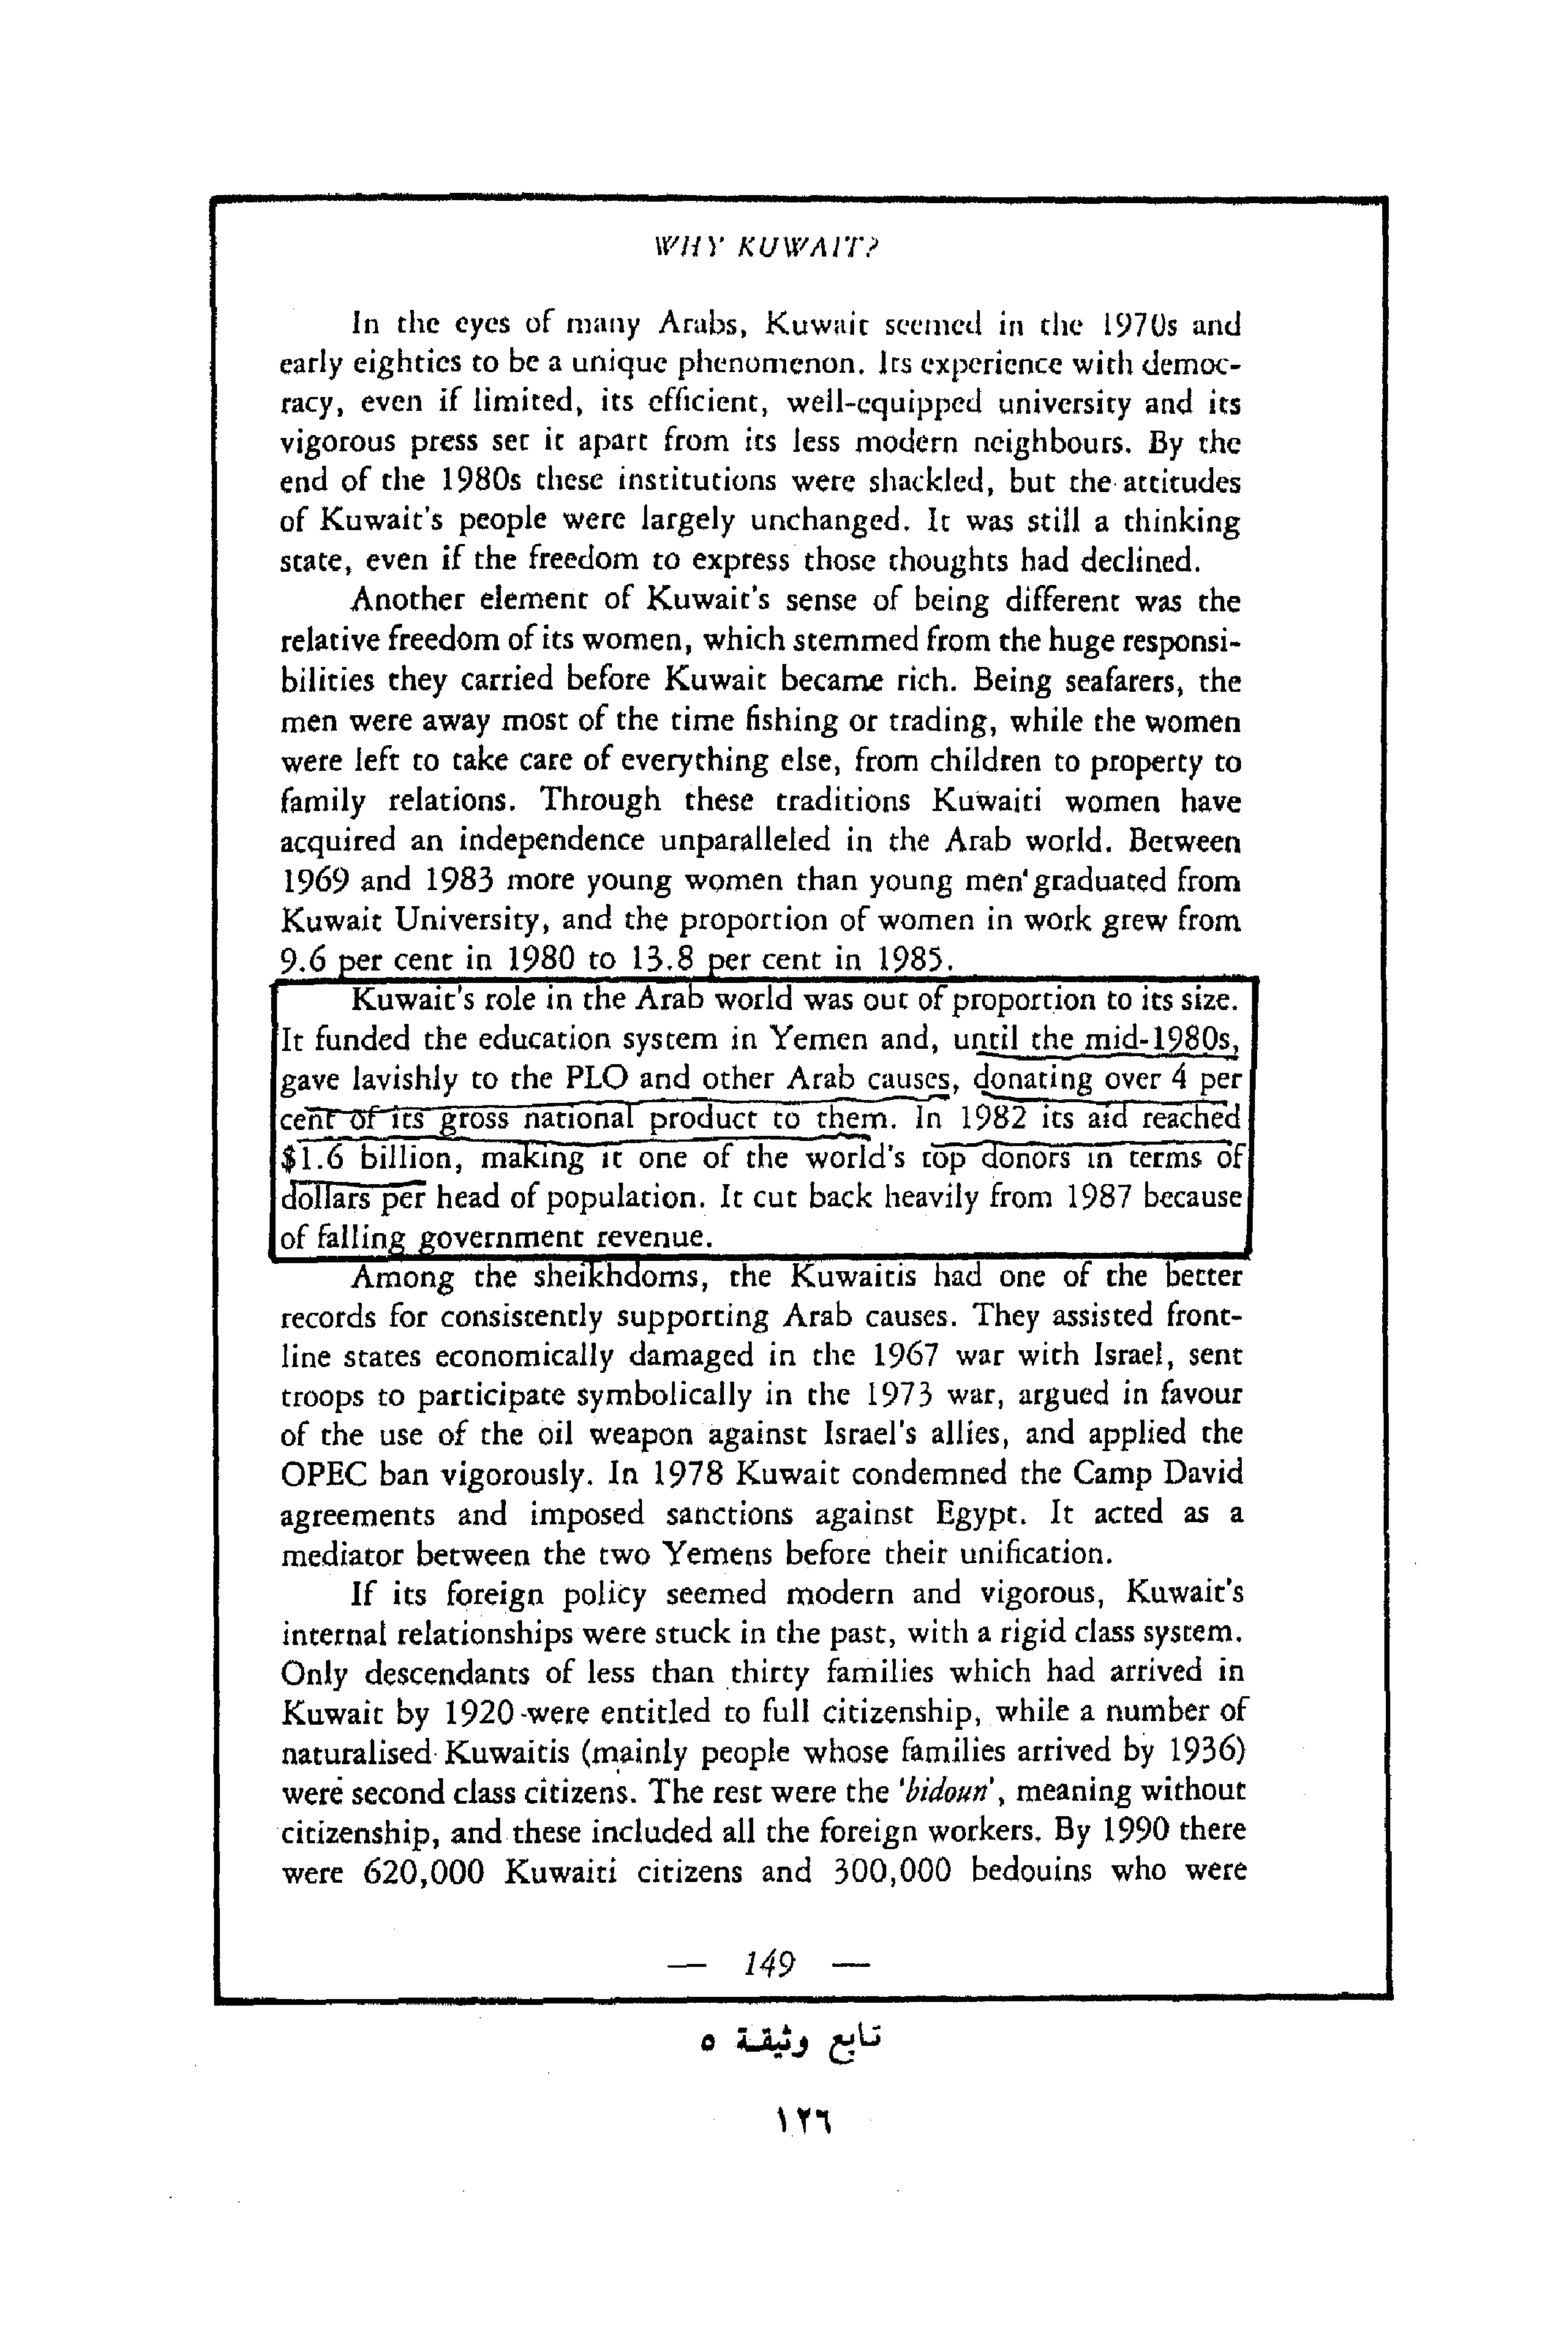 WHY KUWAIT?
In the eyes of many Arabs, Kuwait seemed in the 1970s and
early eighties to be a unique phenomenon. Its experience with democ-
racy, even if limited, its efficient, well-equipped university and its
vigorous press set it apart from its less modern neighbours. By the
end of the 1980s these institutions were shackled, but the attitudes
of Kuwait's people were largely unchanged. It was still a thinking
state, even if the freedom to express those thoughts had declined.
Another element of Kuwait's sense of being different was the
relative freedom of its women, which stemmed from the huge responsi-
bilities they carried before Kuwait became rich. Being seafarers, the
men were away most of the time fishing or trading, while the women
were left to take care of everything else, from children to property to
family relations. Through these traditions Kuwaiti women have
acquired an independence unparalleled in the Arab world. Between
1969 and 1983 more young women than young men graduated from
Kuwait University, and the proportion of women in work grew from
9.6 per cent in 1980 to 13.8 per cent in 1985.
Kuwait's role in the Arab world was out of proportion to its size.
It funded the education system in Yemen and, until the mid-1980s,
gave lavishly to the PLO and other Arab causes, donating over 4 per
cent of its gross national product to them. In 1982 its aid reached
$1.6 billion, making it one of the world's top donors in terms of
dollars per head of population. It cut back heavily from 1987 because
of falling government revenue.
Among the sheikhdoms, the Kuwaitis had one of the better
records for consistently supporting Arab causes. They assisted front-
line states economically damaged in the 1967 war with Israel, sent
troops to participate symbolically in the 1973 war, argued in favour
of the use of the oil weapon against Israel's allies, and applied the
OPEC ban vigorously. In 1978 Kuwait condemned the Camp David
agreements and imposed sanctions against Egypt. It acted as a
mediator between the two Yemens before their unification.
If its foreign policy seemed modern and vigorous, Kuwait's
internal relationships were stuck in the past, with a rigid class system.
Only descendants of less than thirty families which had arrived in
Kuwait by 1920 were entitled to full citizenship, while a number of
naturalised Kuwaitis (mainly people whose families arrived by 1936)
were second class citizens. The rest were the 'bidoun', meaning without
citizenship, and these included all the foreign workers. By 1990 there
were 620,000 Kuwaiti citizens and 300,000 bedouins who were
— 149 —
تابع وثيقة ٥
١٢٦